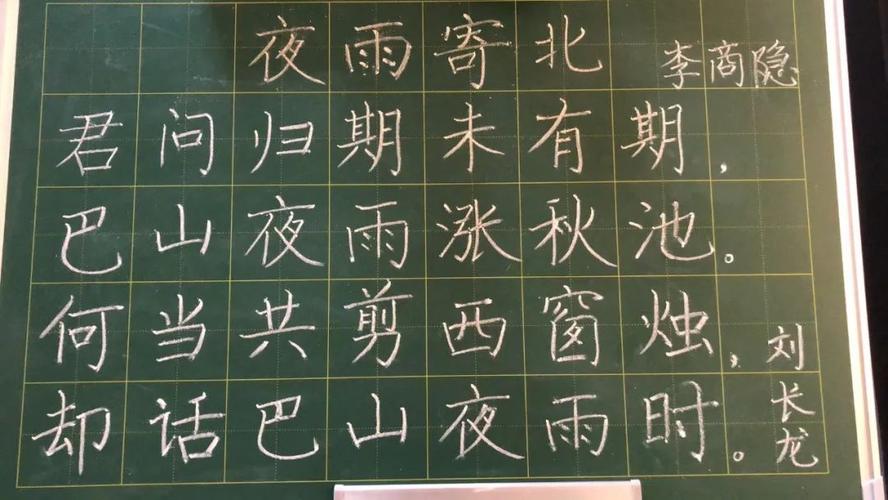 夜雨寄北 李商隐
君问归期未有期，
巴山夜雨涨秋池。
何当共剪西窗烛，
却话巴山夜雨时。
刘长龙